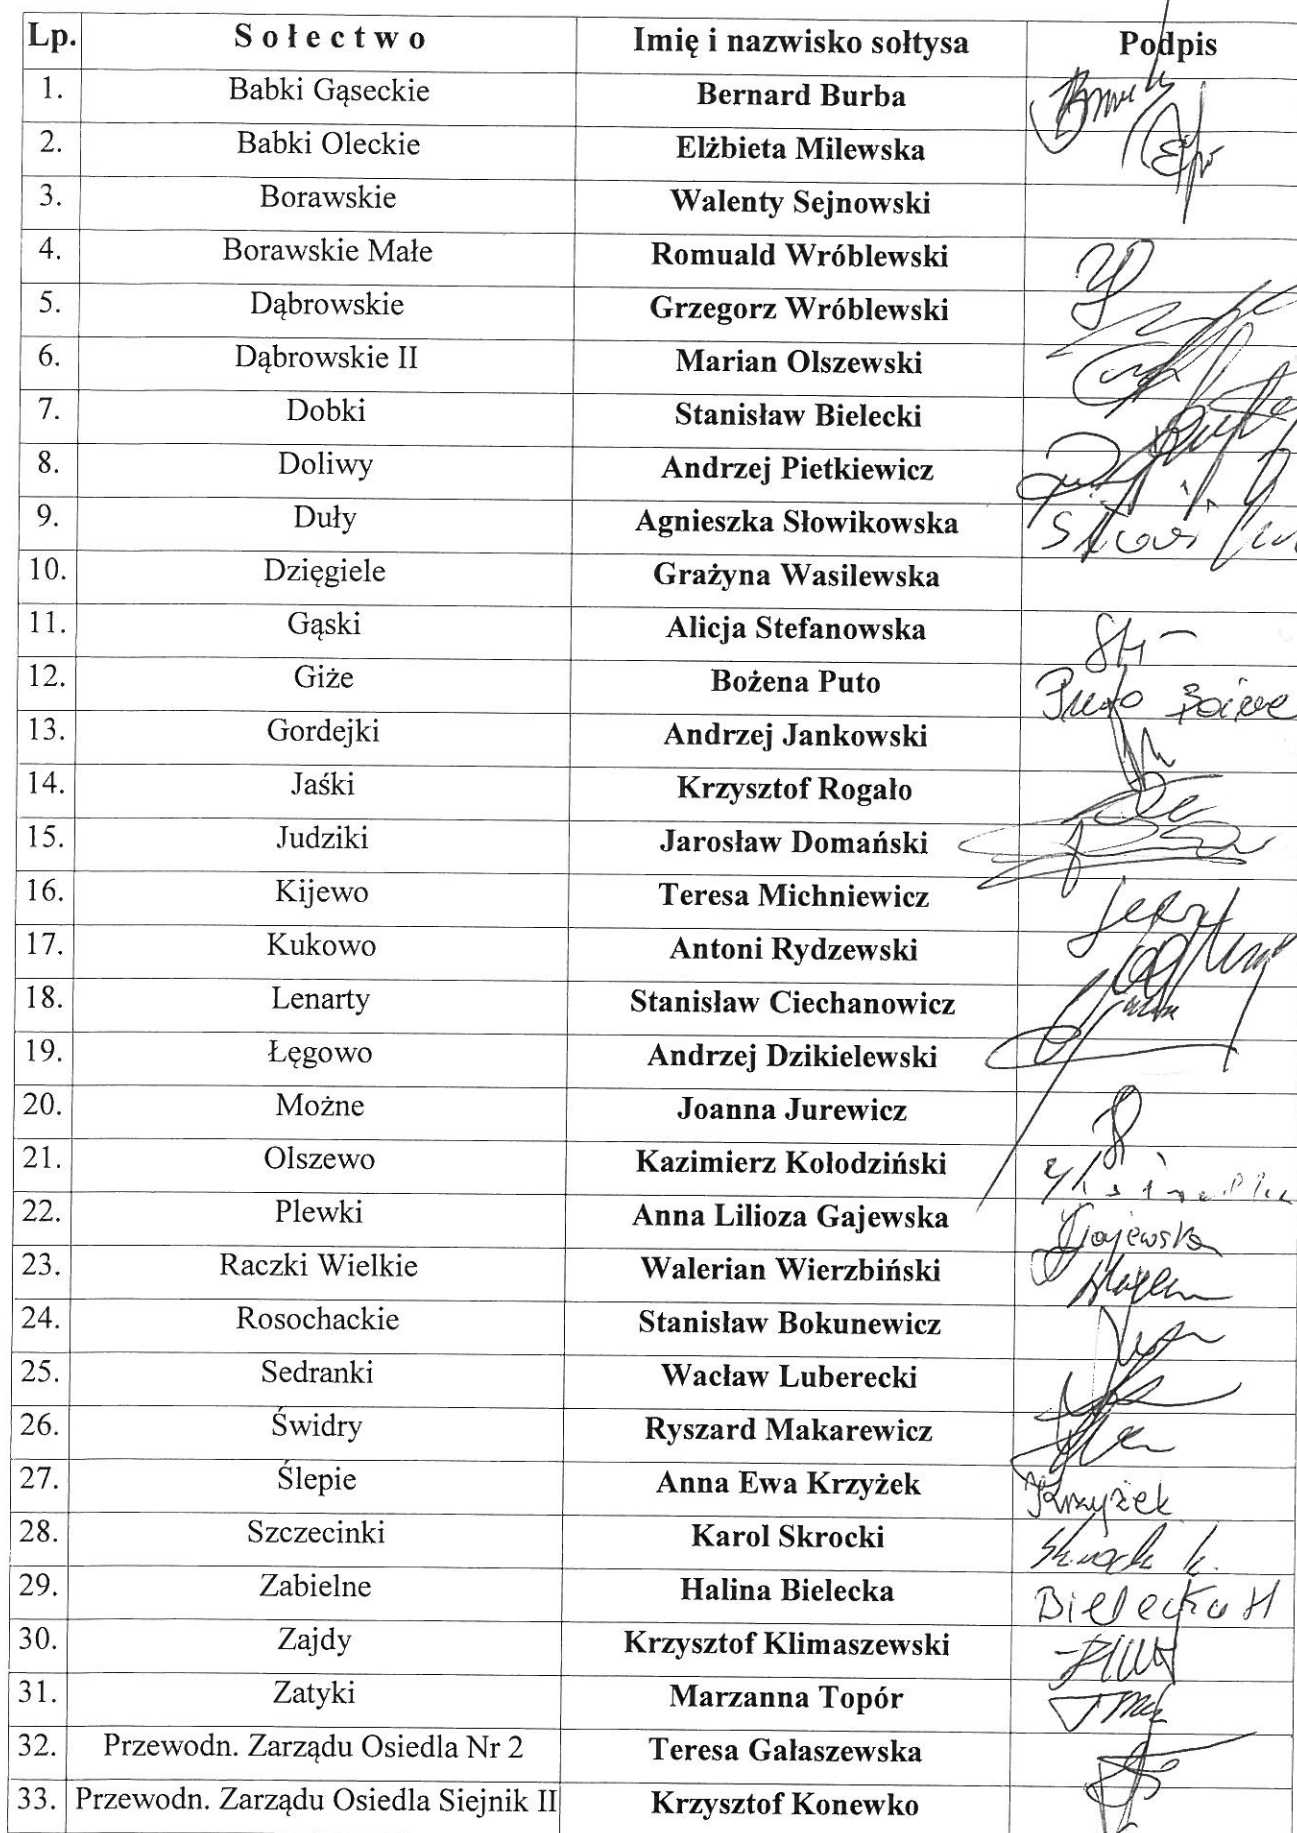 Lp. Sołectwo Imię i nazwisko sołtysa Podpis
1. Babki Gąseckie Bernard Burba
2. Babki Oleckie Elżbieta Milewska
3. Borawskie Walenty Sejnowski
4. Borawskie Małe Romuald Wróblewski
5. Dąbrowskie Grzegorz Wróblewski
6. Dąbrowskie II Marian Olszewski
7. Dobki Stanisław Bielecki
8. Doliwy Andrzej Pietkiewicz
9. Duły Agnieszka Słowikowska
10. Dzięgiele Grażyna Wasilewska
11. Gąski Alicja Stefanowska
12. Giże Bożena Puto Puto
13. Gordejki Andrzej Jankowski
14. Jaśki Krzysztof Rogało
15. Judziki Jarosław Domański
16. Kijewo Teresa Michniewicz
17. Kukowo Antoni Rydzewski
18. Lenarty Stanisław Ciechanowicz
19. Łęgowo Andrzej Dzikielewski
20. Możne Joanna Jurewicz
21. Olszewo Kazimierz Kołodziński
22. Plewki Anna Lilioza Gajewska Gajewska
23. Raczki Wielkie Walerian Wierzbiński
24. Rosochackie Stanisław Bokunewicz
25. Sedranki Wacław Luberecki
26. Świdry Ryszard Makarewicz
27. Ślepie Anna Ewa Krzyżek Krzyżek
28. Szczecinki Karol Skrocki
29. Zabielne Halina Bielecka Bielecka H
30. Zajdy Krzysztof Klimaszewski
31. Zatyki Marzanna Topór
32. Przewodn. Zarządu Osiedla Nr 2 Teresa Gałaszewska
33. Przewodn. Zarządu Osiedla Siejnik II Krzysztof Konewko